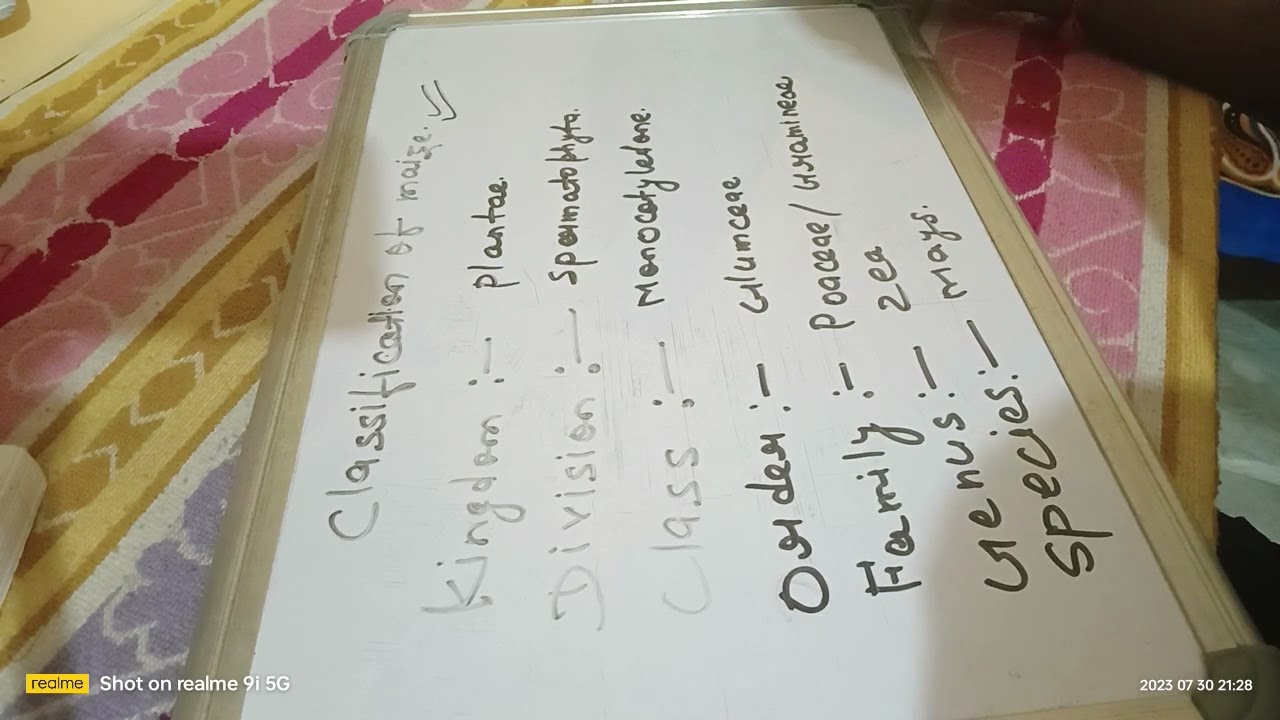 Classification of maize.
Kingdom :- plantae.
Division :- spermatophyta.
Class :- Monocotyledone.
Order :- Glumceae
Family :- Poaceae/Gramineae
Genus :- zea
Species :- mays.
realme Shot on realme 9i 5G
2023 07 30 21:28